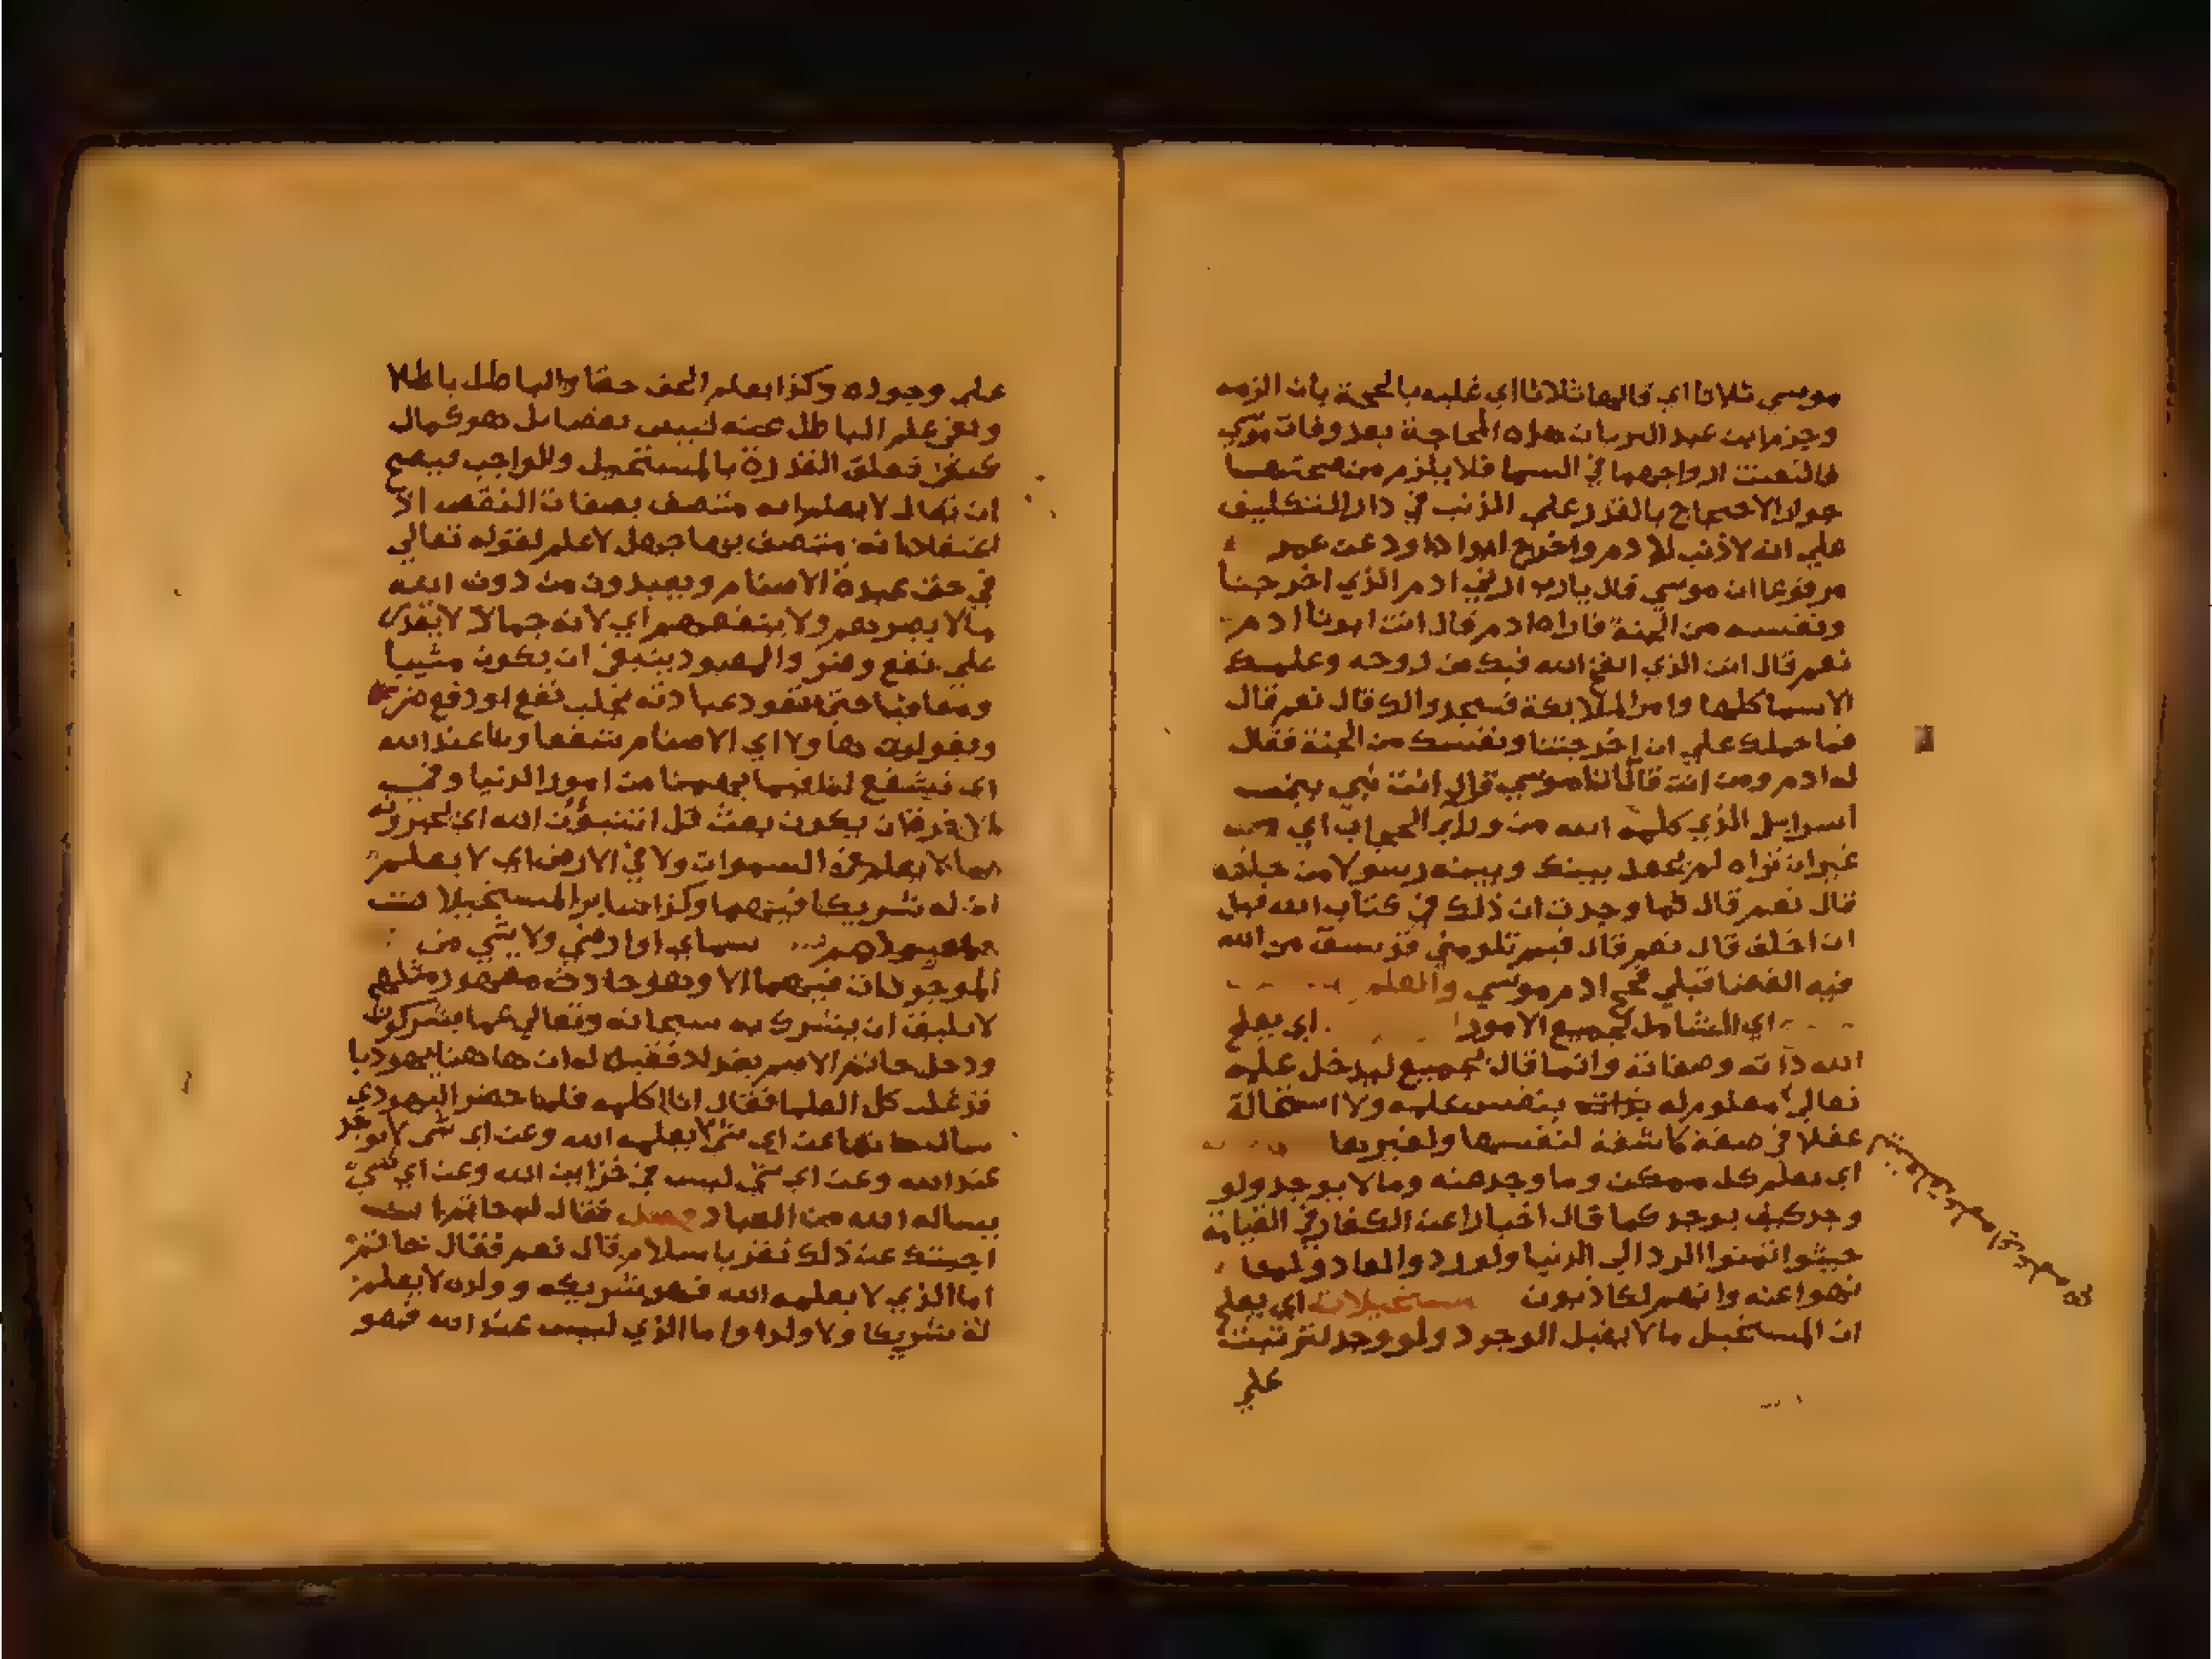 موسي ثلاثا اي قالها ثلاثا اي غلبه بالحجة بان الزمه
وجزم ابن عبد البر بان هذه المحاجة بعد وفات موسي
فالتقت ارواحهما في السما فلا يلزم من صحتهما
جواز الاحتجاج بالقدر علي الذنب في دار التكليف
علي ان لا ذنب لادم واخرج ابوا داود عن عمر
مرفوعا ان موسي قال يا رب ارني ادم الذي اخرجنا
ونفسه من الجنة فاراه ادم قال انت ابونا ادم
نعم قال انت الذي نفخ الله فيك من روحه وعلمك
الاسما كلها وامر الملايكة فسجدوا لك قال نعم قال
فما حملك علي ان اخرجتنا ونفسك من الجنة فقال
له ادم ومن انت قال انا موسي قال انت نبي بني
اسرايل الذي كلمه الله من وراء الحجاب اي من
غير ان تراه لم يجعل بينك وبينه رسولا من خلقه
قال نعم قال فما وجدت ان ذلك في كتاب الله قبل
ان اخلق قال نعم قال فبم تلومني في سبق من الله
فيه القضا قبلي فحج ادم موسي والعلم
اي الشامل لجميع الامور اي يعلم
الله ذاته وصفاته وانما قال لجميع ليدخل علمه
تعالي معلوم له بنفس علمه ولا استحالة
عقلا في صفة كاشفة لنفسها ولغيرها
اي يعلم كل ممكن وما وجد منه وما لا يوجد ولو
وجد كيف يوجد كما قال اخبارا عن الكفار في القيامة
حيث تمنوا الرد الي الدنيا ولو ردوا لعادوا لما
نهوا عنه وانهم لكاذبون مستحيلات اي يعلم
ان المستحيل ما لا يقبل الوجود ولو وجد لترتبت
علي
علي وجوده وكذا يعلم الحق حقا والباطل باطلا
ونفي علم الباطل عنه ليس نقصا بل هو كمال
كنفي تعلق القدرة بالمستحيل والواجب فيصح
ان يقال لا يعلم انه متصف بصفات النقص اذ
اعتقاد انه متصف بها جهل لا علم لقوله تعالي
في حق عبدة الاصنام ويعبدون من دون الله
ما لا يضرهم ولا ينفعهم اي لانه جماد لا يقدر
علي نفع وضر والمعبود ينبغي ان يكون مثيبا
ومعاقبا حتي تعود عبادته بجلب نفع او دفع ضر
ويقولون هاولا اي الاصنام شفعاونا عند الله
اي فيشفع لنا فيما يهمنا من امور الدنيا وفي
الاخرة ان يكون بعث قل اتنبؤن الله اي تخبرونه
بما لا يعلم في السموات ولا في الارض اي لا يعلم
ان له شريكا فيهما وكذا ساير المستحيلات
سماي او ارضي ولا شي من
الموجودات فيهما الا وهو حادث مقهور مثلهم
لا يليق ان يشرك به سبحانه وتعالي عما يشركون
ودخل حاتم الاصم بغداد فقيل له ان ها هنا يهوديا
قد غلب كل العلما فقال انا اكلمه فلما حضر اليهودي
سال حاتما عن اي شي لا يعلمه الله وعن اي شي لا يوجد
عند الله وعن اي شي ليس في خزاين الله وعن اي شي
يساله الله من العباد فقال له حاتم ان
اجبتك عن ذلك تقر باسلام قال نعم فقال حاتم
اما الذي لا يعلمه الله فهو شريكه وولده لا يعلم
له شريكا ولا ولدا واما الذي ليس عند الله فهو